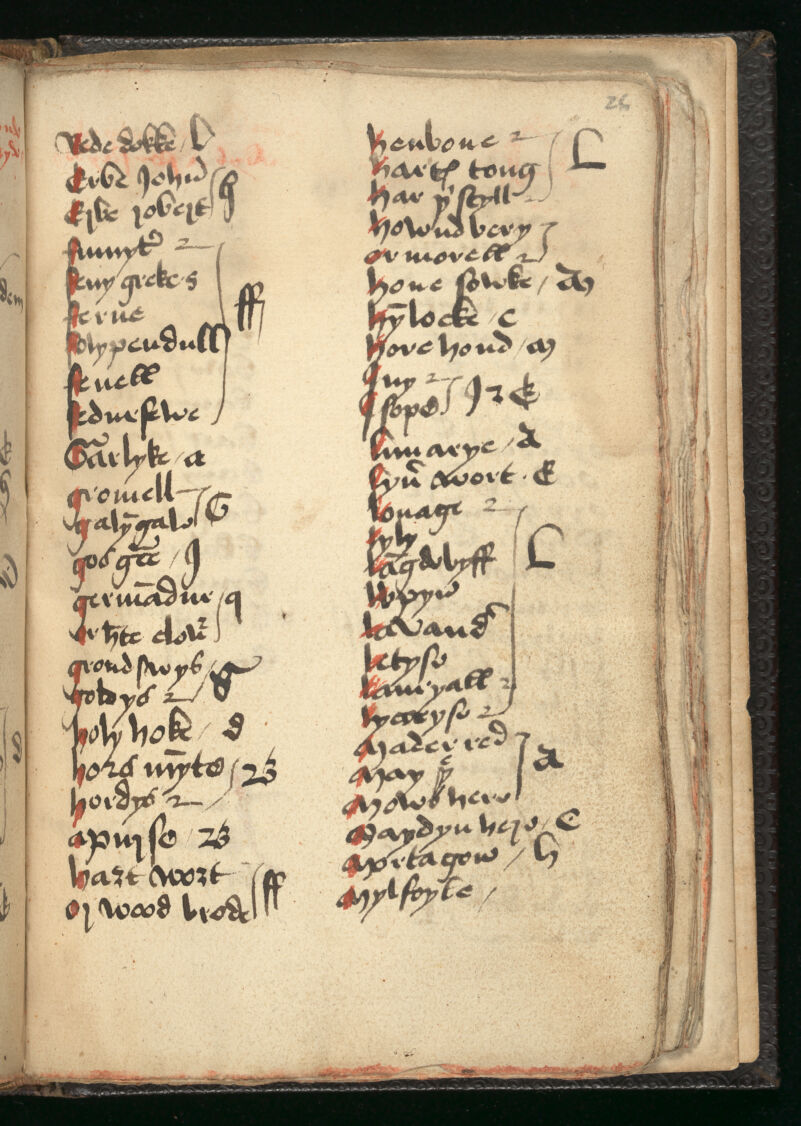 26
Rede dokke / b
Erbe John
Erbe robert
h
fumyter 2
feny grekes
ferne
fylypendull
fenell
fedurfewe
ff
Garlyke / a
gromell
galyngale
G
gos gres / J
germadur / q
or hte clow
grond swys
goldys 2 / G
holy hoke / d
hors mynte
hordys 2
/ 2B
apurse / 2B
hart wort
or wood brode
ff
henbone 2
harts tong
har ystyll
L
hownd bery
or morell 2
hone sowke / M
hymlocke / e
hore hound / m
Jvy 2
Isope
J 2 E
lumarye / A
lyn wort / E
louage 2
lyly
langdelyff
lavand
letyse
lauryall 2
lycoryse 2
L
Mader red
May
Mows here
A
Maydyn here / C
Mortagow / h
Mylfoyle /